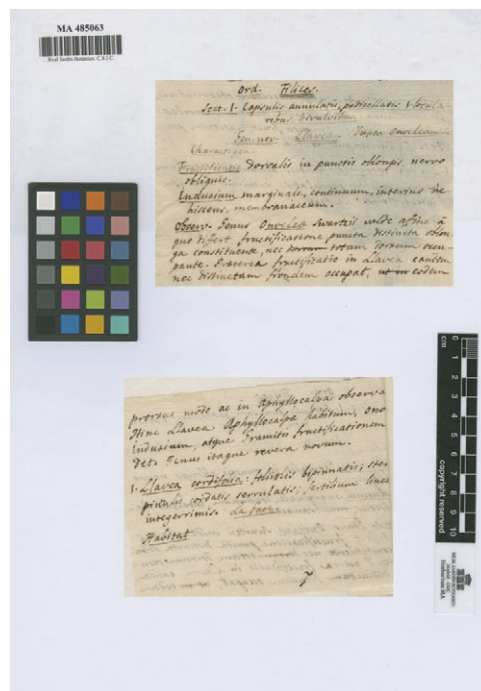 MA 485063
Real Jardín Botánico, C.S.I.C.
Ord. Filices.
Sect. 1. Capsulis annulatis, pedicellatis 1-locula-
ribus bivalvibus
Gen. nov. Llavea.
Charact. gen.
Fructificatio dorsalis in punctis oblongis nervo
obliquis.
Indusium marginale, continuum, interius de-
hiscens, membranaceum.
Observ. Genus Onoclea Swartzii valde affine a
quo differt fructificatione puncta distincta oblon-
ga constituente, nec dorsum totum dorsum occu-
pante. Praeterea fructificatio in Llavea eandem
nec distinctam frondem occupat, ut in eodem
prorsus modo ac in Aphyllocalpa observa
Hinc Llavea Aphyllocalpae habitum, Ono
indusium, atque Gramitis fructificationem
det. Genus itaque revera novum.
1. Llavea cordifolia: foliolis bipinnatis; ste
pinnulis cordatis serrulatis; fertilium linea
integerrimis. La
Habitat
cm
0 1 2 3 4 5 6 7 8 9 10
copyright reserved
REAL JARDÍN BOTÁNICO
Madrid - CSIC
Herbarium MA